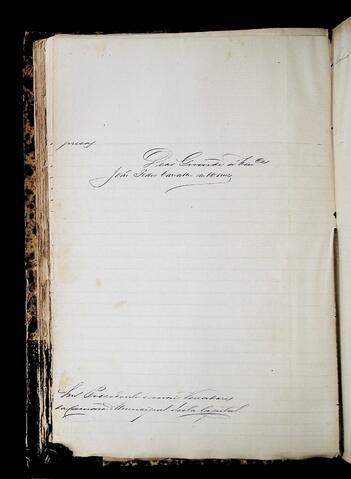 presos
Deos Guarde a V.ces
João Pedro Carvalho de Moraes
Snrs Presidente e mais Vereadores
da Camara Municipal desta Capital